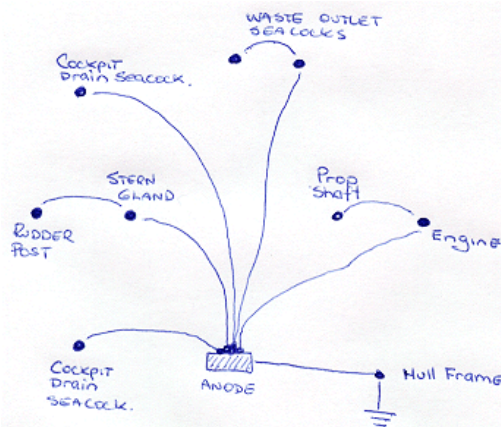 WASTE OUTLET
SEACOCKS
COCKPIT
Drain SEACOCK.
STERN
GLAND
Prop
Shaft
RUDDER
POST
Engine
COCKPIT
Drain
SEACOCK.
ANODE
Hull Frame